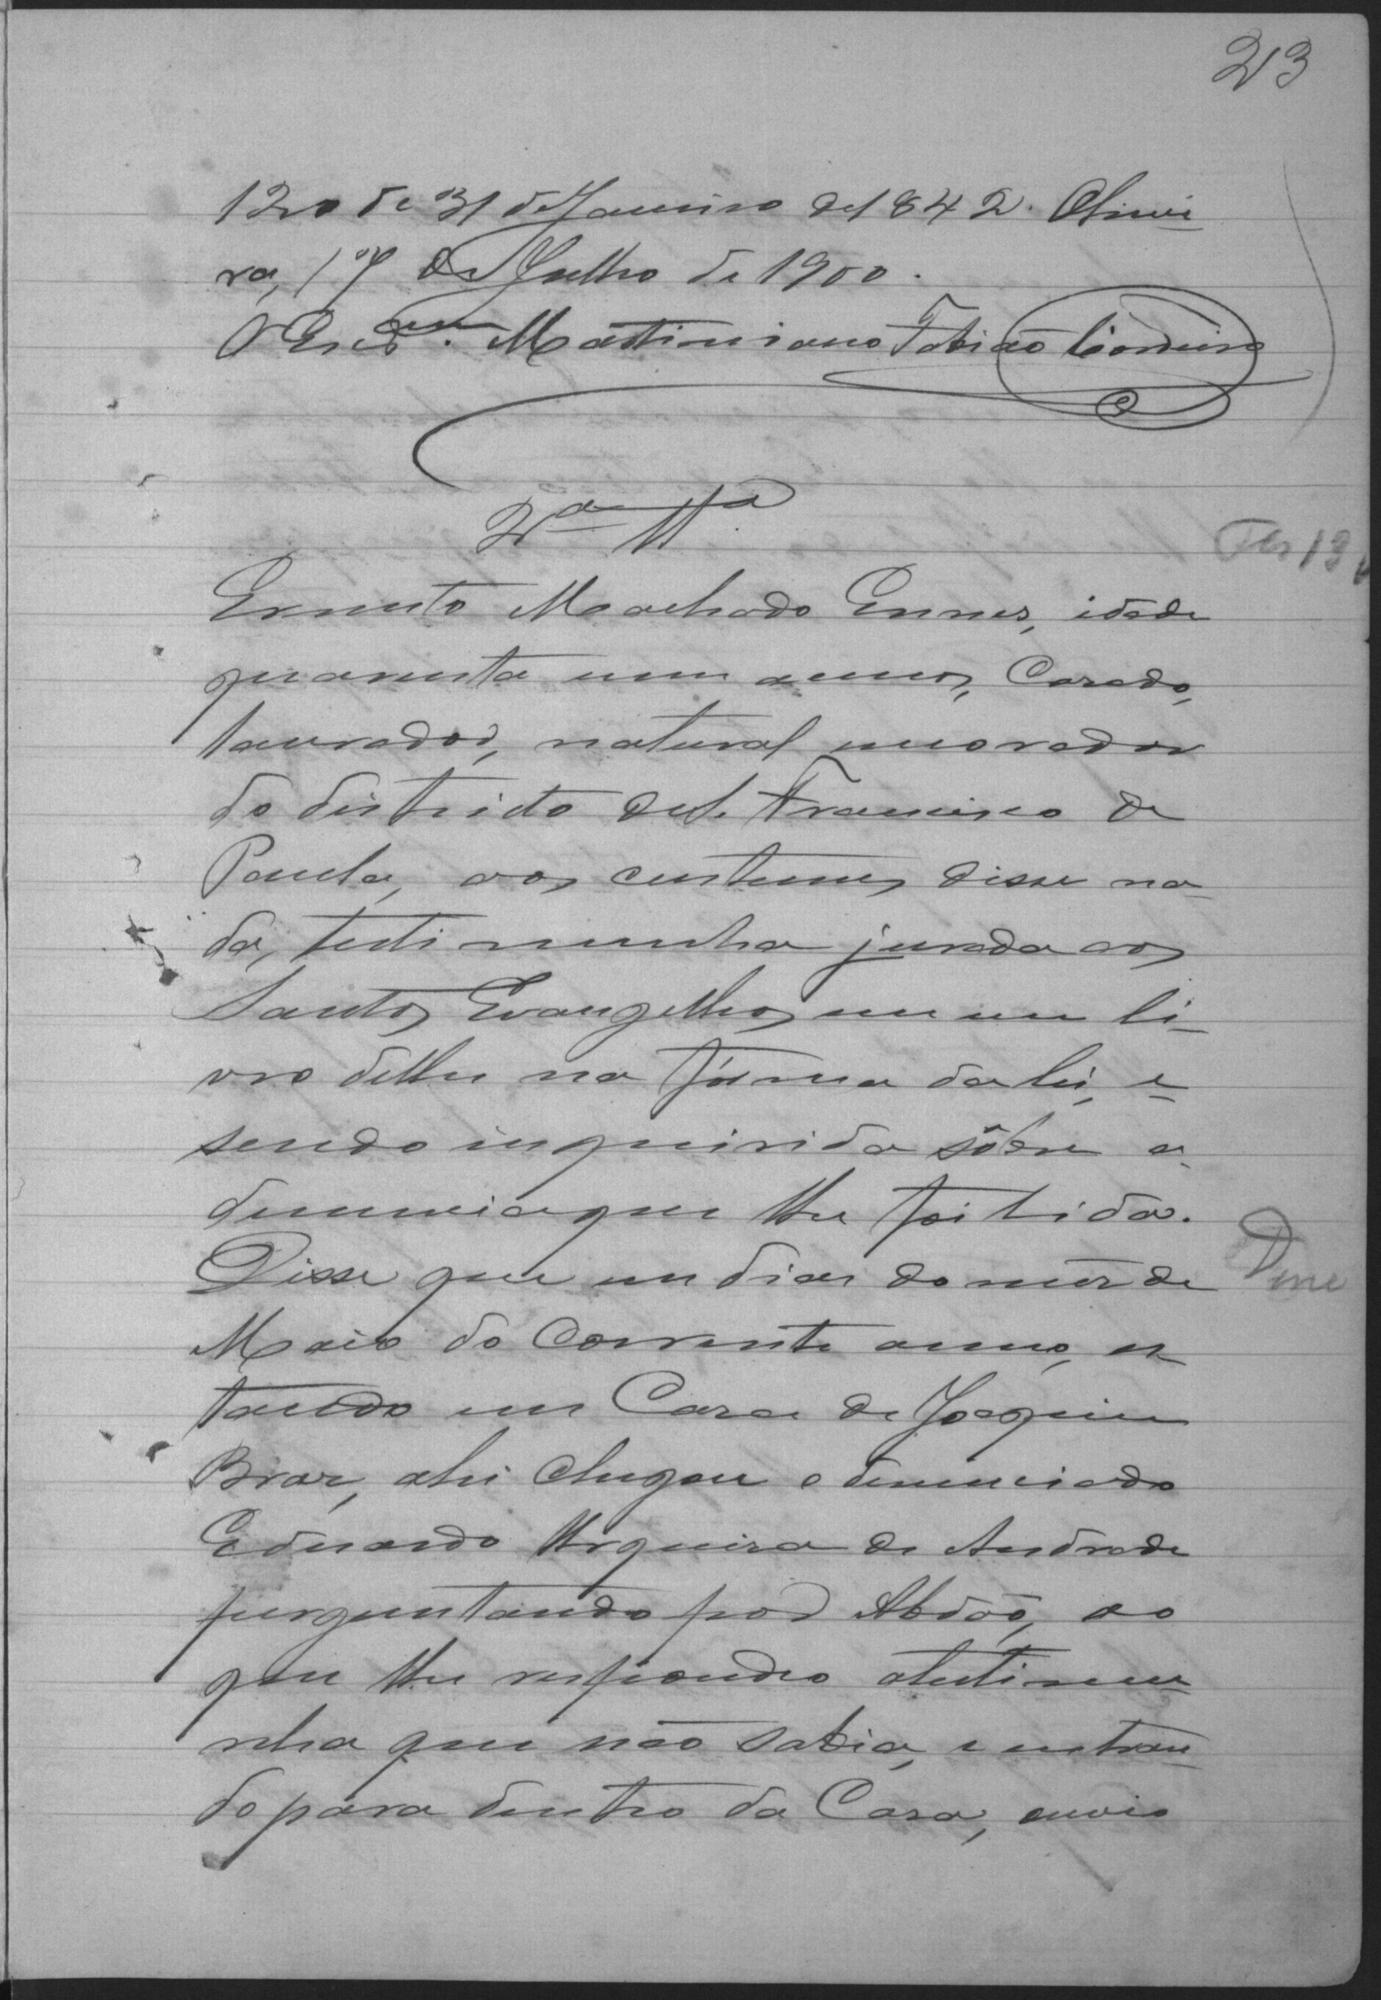 23
120 de 31 de Janeiro de 1842. Olivei-
ra, 17 de Julho de 1900.
O Escr.am Martiniano Fabião Cordeiro
2a Tta
Fls 13 v
Ernesto Machado Ennes, idade
quarenta um annos, casado,
lavrador, natural morador
do districto de S. Francisco de
Paula, aos custumes disse na-
da, testimunha jurada aos
Santos Evangelhos em um li-
vro delles na fórma da lei, e
sendo inquirida sôbre a
denuncia que lhe foi lida.
Disse que em dias do mêz de
Maio do corrente anno, es-
tando em Casa de Joaquim
Braz, ahi chegou o denunciado
Eduardo Cerqueira de Andrade
perguntando por Abdão, ao
que lhe respondeo a testimu-
nha que não sabia, e entran-
do para dentro da Casa, ouvio